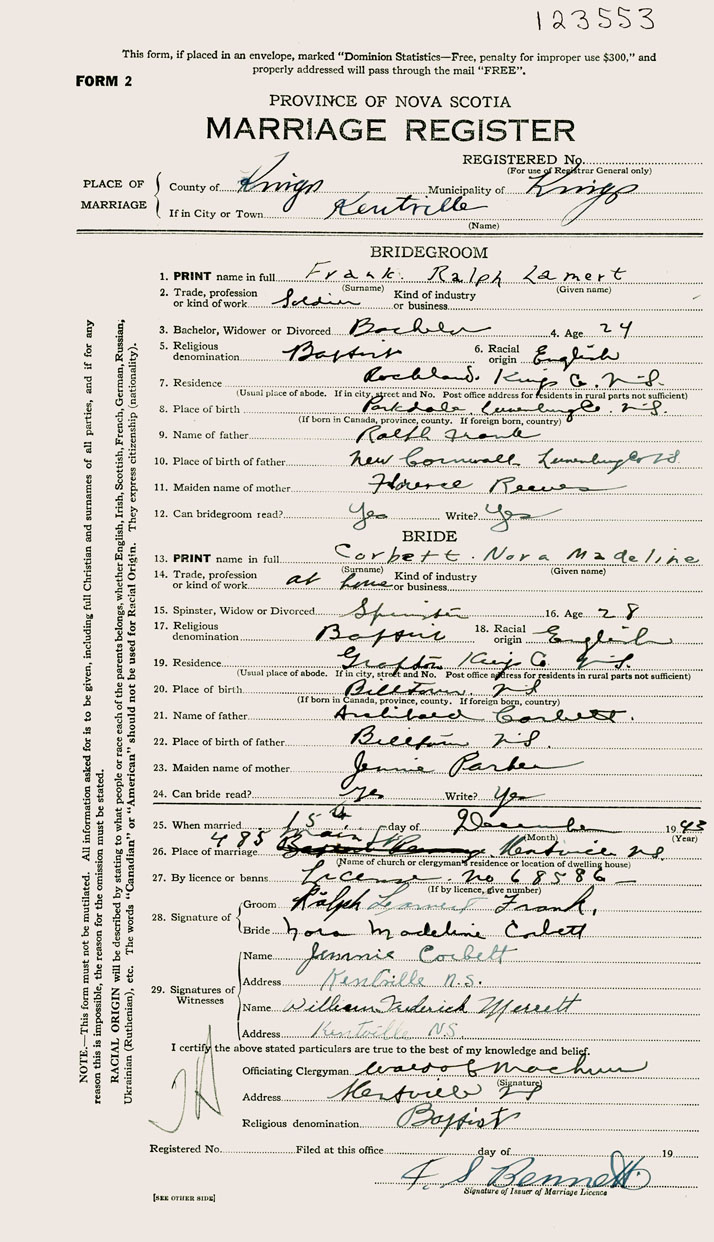 123553
This form, if placed in an envelope, marked "Dominion Statistics—Free, penalty for improper use $300," and
properly addressed will pass through the mail "FREE".
FORM 2
PROVINCE OF NOVA SCOTIA
MARRIAGE REGISTER
REGISTERED No.
(For use of Registrar General only)
PLACE OF MARRIAGE
County of Kings Municipality of Kings
If in City or Town Kentville
(Name)
BRIDEGROOM
1. PRINT name in full Frank. Ralph Lamert
(Surname) (Given name)
2. Trade, profession or kind of work Soldier Kind of industry or business
3. Bachelor, Widower or Divorced Bachelor 4. Age 24
5. Religious denomination Baptist 6. Racial origin English
7. Residence Rockland. Kings Co. N.S.
(Usual place of abode. If in city, street and No. Post office address for residents in rural parts not sufficient)
8. Place of birth Parkdale. Lunenburg Co. N.S.
(If born in Canada, province, county. If foreign born, country)
9. Name of father Ralph Frank
10. Place of birth of father New Cornwall Lunenburg Co NS
11. Maiden name of mother Florence Reeves
12. Can bridegroom read? Yes Write? Yes
BRIDE
13. PRINT name in full Corbett. Nora Madeline
(Surname) (Given name)
14. Trade, profession or kind of work at home Kind of industry or business
15. Spinster, Widow or Divorced Spinster 16. Age 28
17. Religious denomination Baptist 18. Racial origin English
19. Residence Grafton Kings Co N.S.
(Usual place of abode. If in city, street and No. Post office address for residents in rural parts not sufficient)
20. Place of birth Billtown. NS
(If born in Canada, province, county. If foreign born, country)
21. Name of father Archibald Corbett.
22. Place of birth of father Billtown N.S.
23. Maiden name of mother Jennie Parker
24. Can bride read? Yes Write? Yes
25. When married 15th day of December 1943
(Month) (Year)
26. Place of marriage 485 Main St Kentville N.S.
(Name of church or clergyman's residence or location of dwelling house)
27. By licence or banns License. no 68586
(If by licence, give number)
28. Signature of
Groom Ralph Frank.
Bride Nora Madeline Corbett
29. Signatures of Witnesses
Name Jennie Corbett
Address Kentville N.S.
Name William Frederick Merrett
Address Kentville NS
I certify the above stated particulars are true to the best of my knowledge and belief.
Officiating Clergyman
(Signature)
Address Kentville NS
Religious denomination Baptist
Registered No. Filed at this office day of 19
Bennett
Signature of Issuer of Marriage Licence
[SEE OTHER SIDE]
NOTE.—This form must not be mutilated. All information asked for is to be given, including full Christian and surnames of all parties, and if for any
reason this is impossible, the reason for the omission must be stated.
RACIAL ORIGIN will be described by stating to what people or race each of the parents belongs, whether English, Irish, Scottish, French, German, Russian,
Ukrainian (Ruthenian), etc. The words "Canadian" or "American" should not be used for Racial Origin. They express citizenship (nationality).